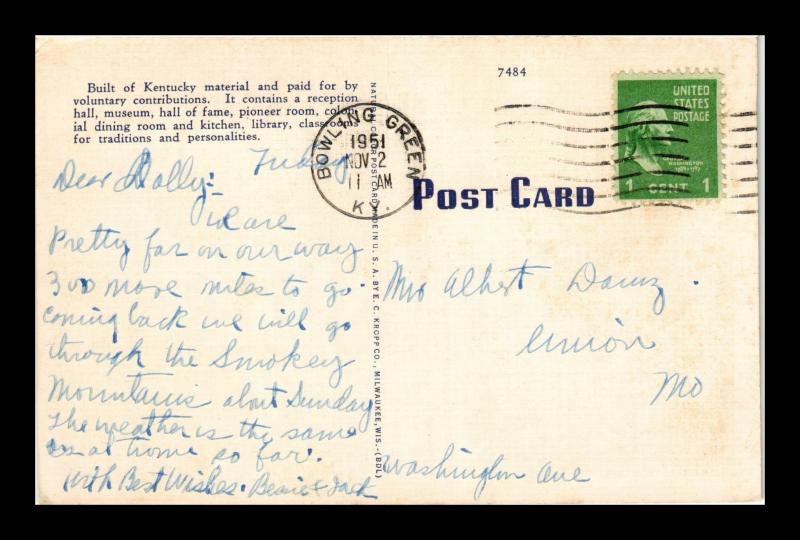 7484
UNITED
STATES
POSTAGE
GEORGE
WASHINGTON
1 CENT 1
Built of Kentucky material and paid for by
voluntary contributions. It contains a reception
hall, museum, hall of fame, pioneer room, colon-
ial dining room and kitchen, library, classrooms
for traditions and personalities.
BOWLING GREEN
1951
NOV 2
11 AM
KY.
POST CARD
NATURAL COLOR POST CARD MADE IN U. S. A. BY E. C. KROPP CO., MILWAUKEE, WIS.-(BDL)
Friday
Dear Dolly:
We are
Pretty far on our way
300 more miles to go
coming back we will go
through the Smokey
Mountains about Sunday
The weather is the same
as at home so far.
With Best Wishes. & Jack
Mrs Albert
Union
Mo
Washington Ave